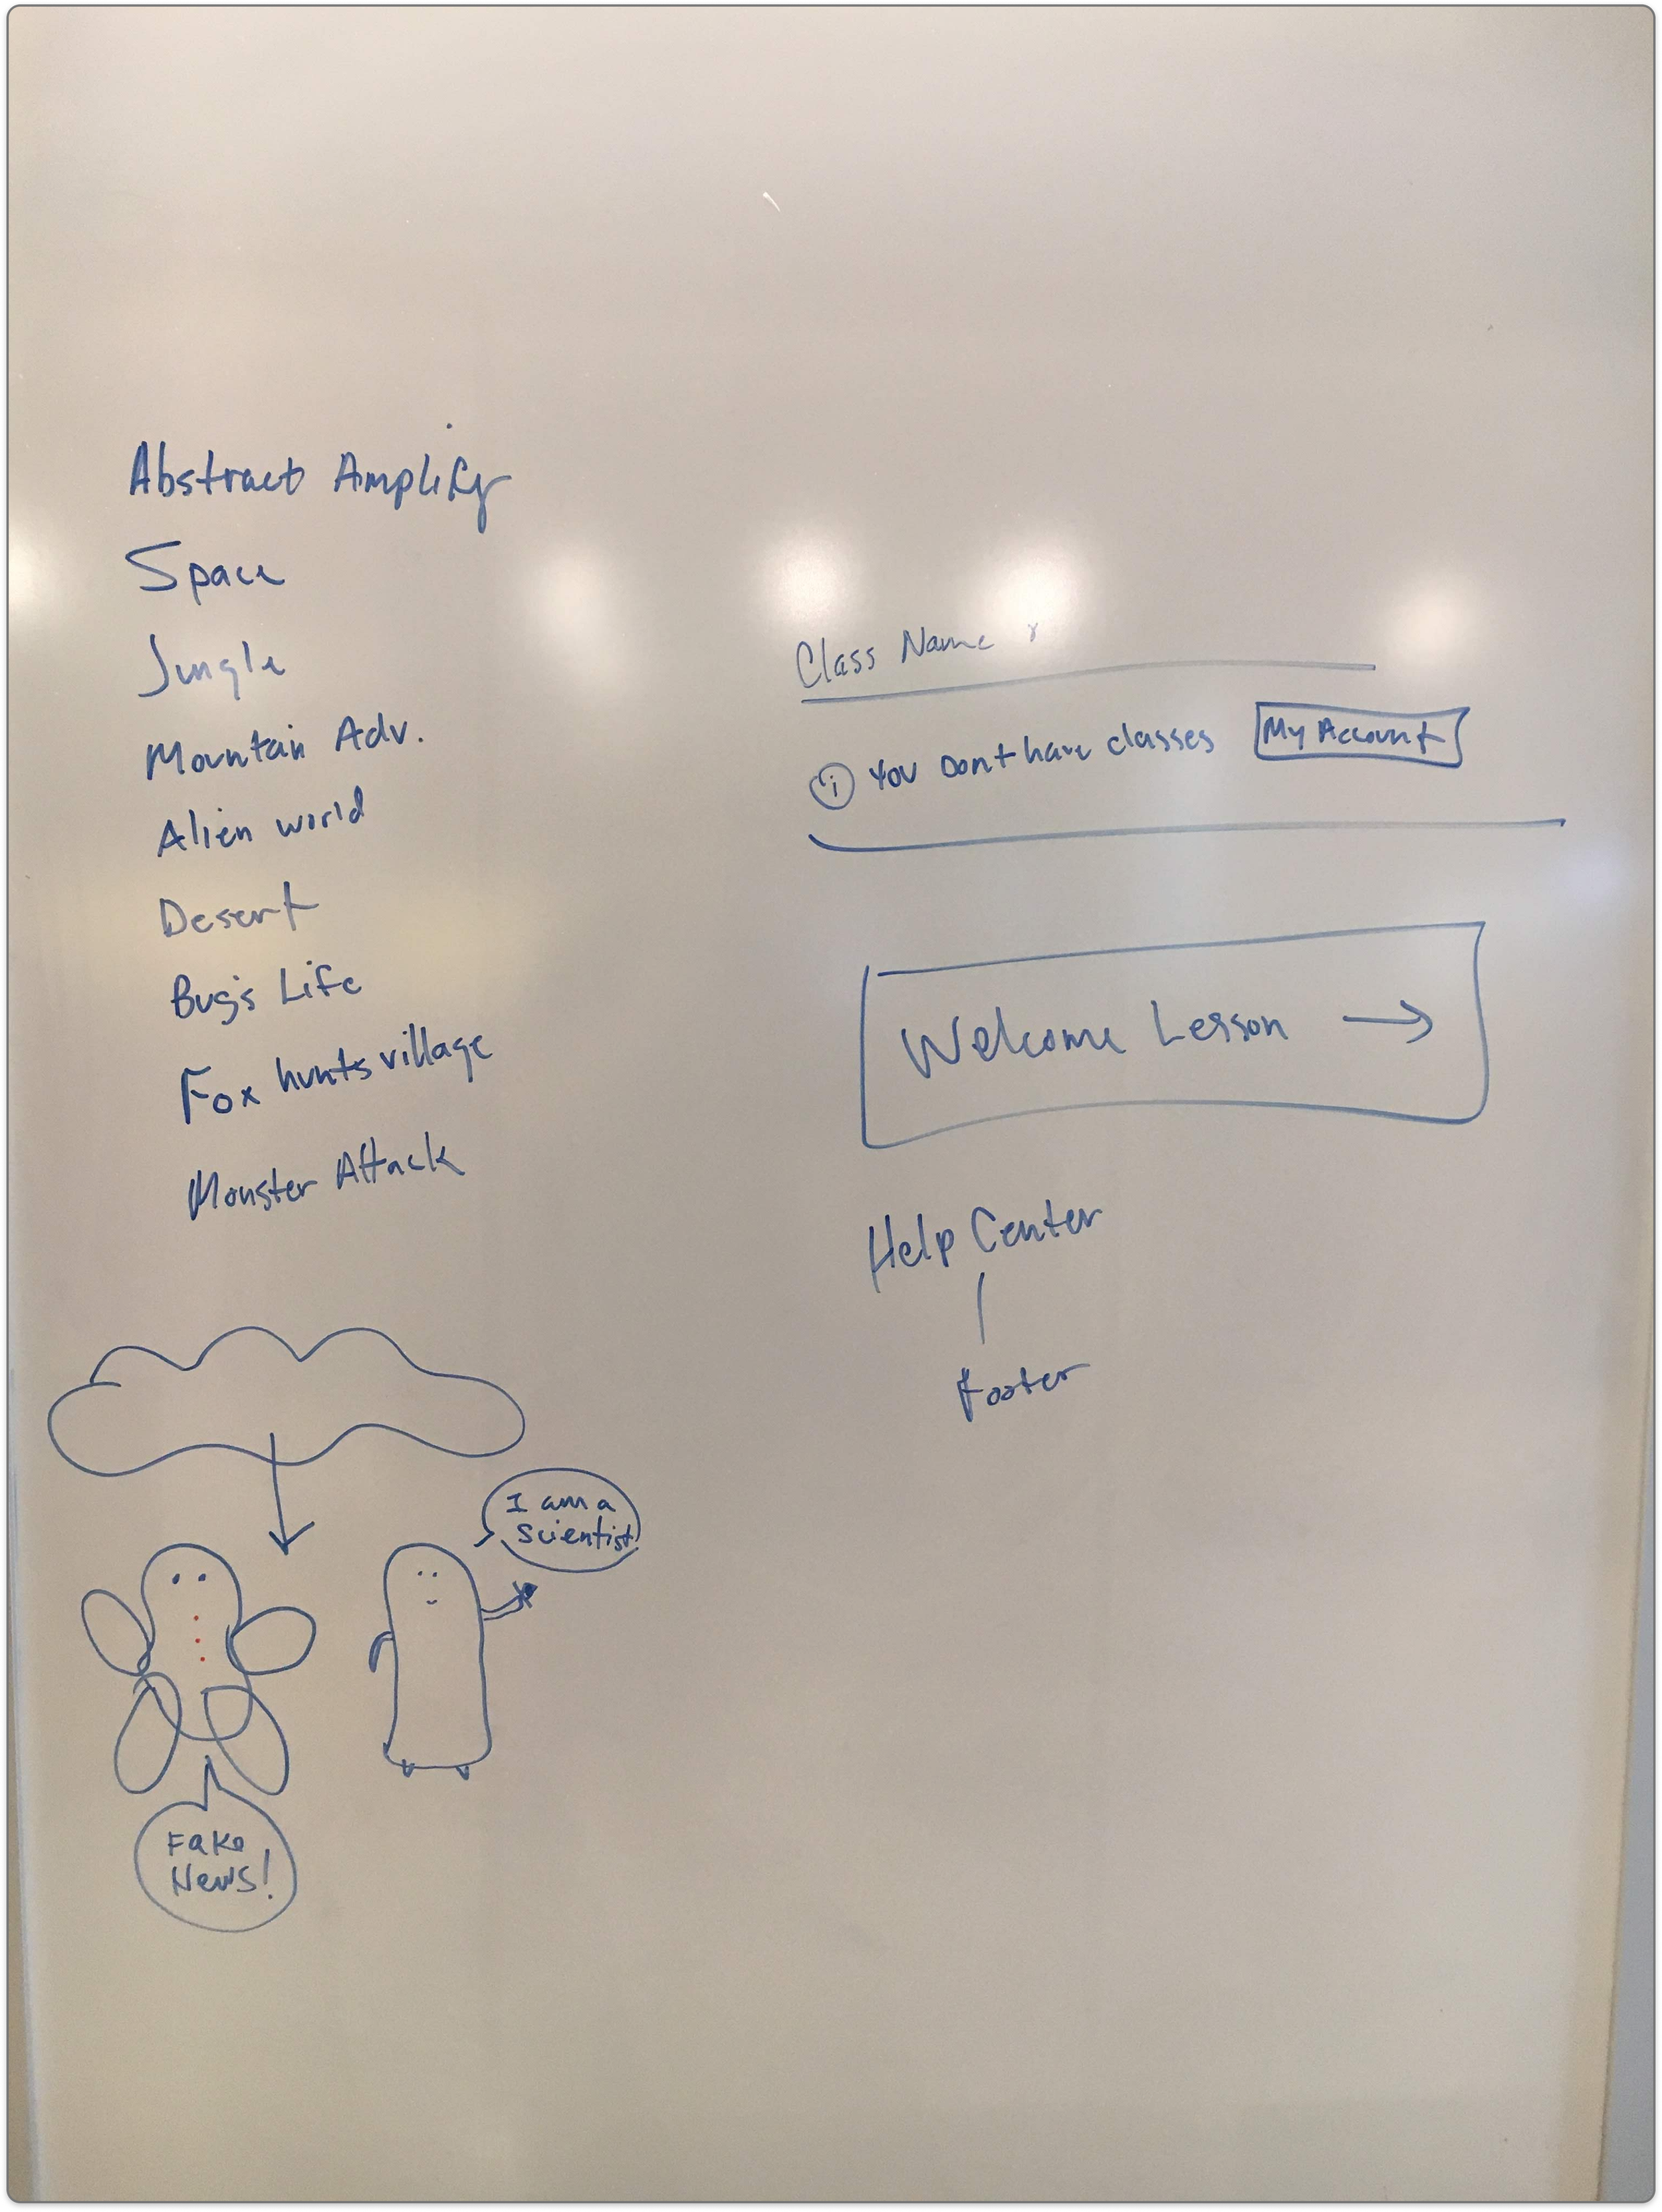 Abstract Amplify
Space
Jungle
Mountain Adv.
Alien world
Desert
Bug's Life
Fox hunts village
Monster Attack
I am a
scientist
Fake
News!
Class Name
i You Dont have classes My Account
Welcome Lesson →
Help Center
Footer